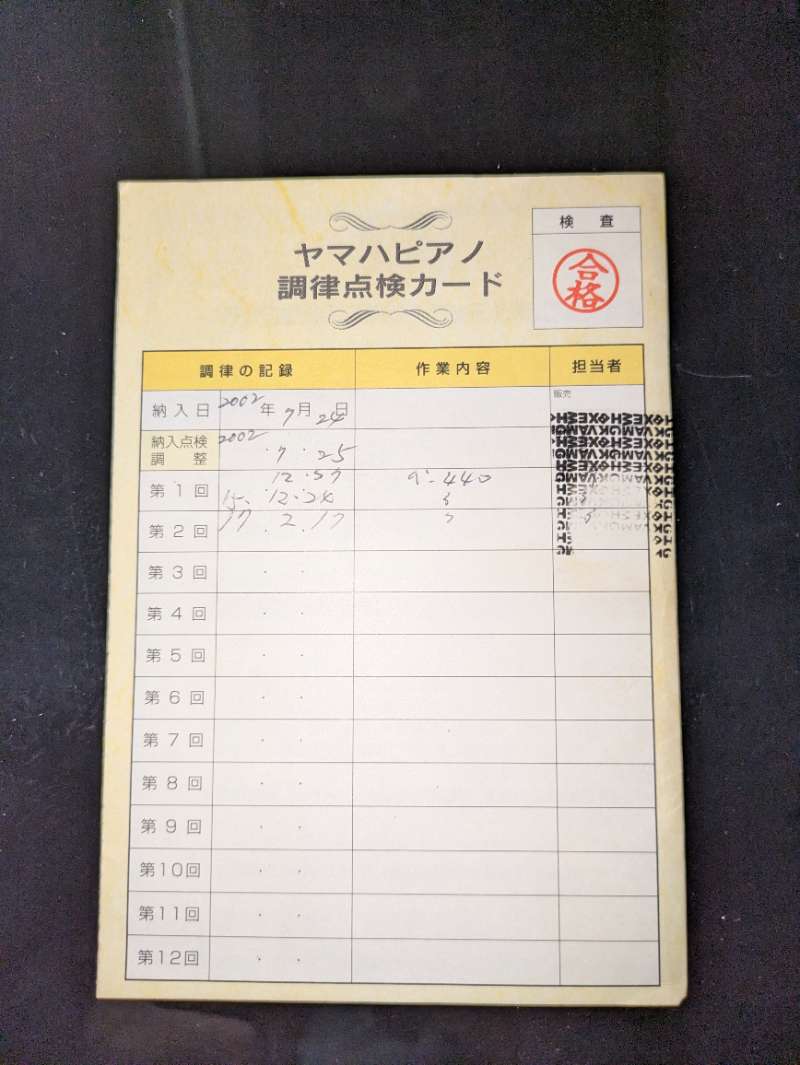 検 査
合格
ヤマハピアノ
調律点検カード
調律の記録 作業内容 担当者
納入日 2002年 7月 24日 販売
納入点検調整 2002 . 7 . 25
12.
第1回 15. 12. 440
第2回 17 . 2 . 17
第3回 . .
第4回 . .
第5回 . .
第6回 . .
第7回 . .
第8回 . .
第9回 . .
第10回 . .
第11回 . .
第12回 . .